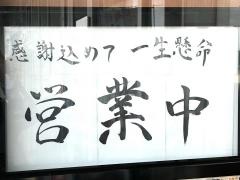 感謝込めて 一生懸命
営業中